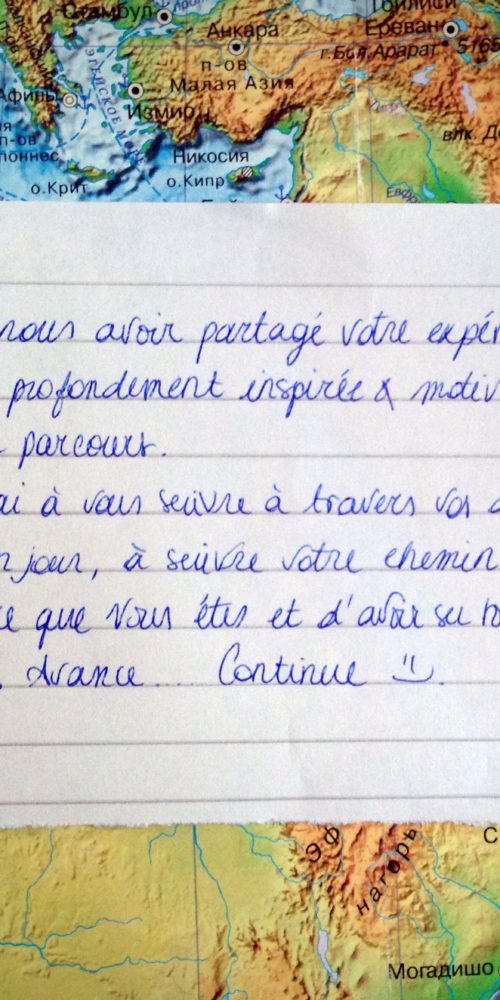 Стамбул
Тбилиси
Анкара
Ереван
г.Бол.Арарат 5165
п-ов
Малая Азия
Афины
ЭГЕЙСКОЕ МОРЕ
Измир
Тигр
влк.
п-ов
Никосия
о.Крит
о.Кипр
Евфр
nous avoir partagé votre expér
profondement inspirée & motiv
parcours.
ai à vous suivre à travers vos
jour, à suivre votre chemin
ce que vous êtes et d'avoir su
Avance... Continue
Эф
нагорь
Могадишо